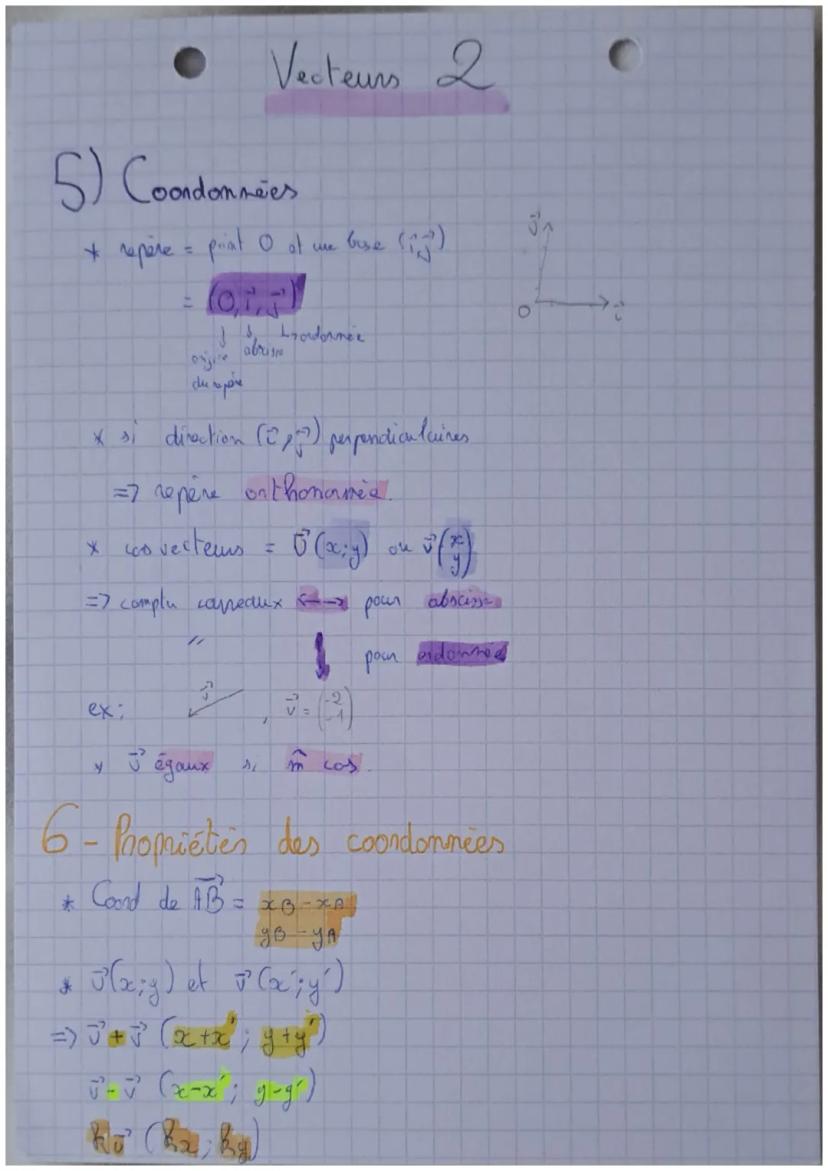 Vecteurs 2
5) Coordonnées
* repère = point O et une base (i⃗, j⃗)
= (O, i⃗, j⃗)
origine du repère
abscisse
ordonnée
j⃗
O
i⃗
* si direction (i⃗, j⃗) perpendiculaires
=> repère orthonormée.
* cos vecteurs = u⃗ (x; y) ou v⃗ (x y)
=> compter carreaux <--> pour abscisse
" ↓ pour ordonnée
ex: v⃗ , v⃗ = (-2 -1)
* v⃗ égaux si m̂ cos.
6 - Propriétés des coordonnées
* Coord de AB⃗ = xB - xA
yB - yA
* u⃗(x; y) et v⃗(x'; y')
=> u⃗ + v⃗ (x+x' ; y+y')
u⃗ - v⃗ (x-x' ; y-y')
ku⃗ (kx ; ky)